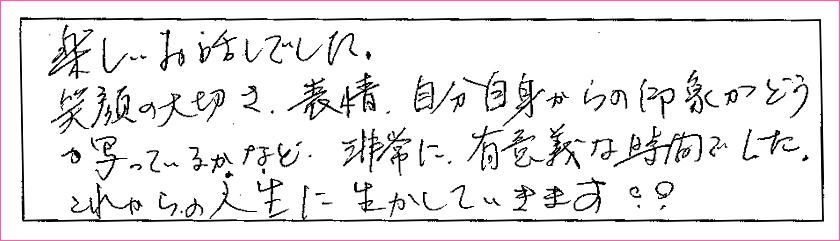 楽しいお話しでした。
笑顔の大切さ、表情、自分自身からの印象がどう
写っているかなど、非常に、有意義な時間でした。
これからの人生に生かしていきます!!